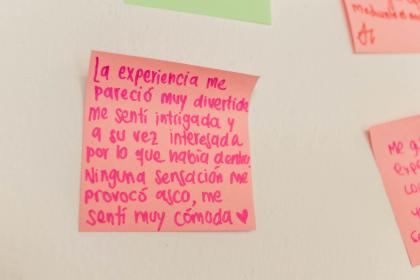 La experiencia me
pareció muy divertida
me sentí intrigada y
a su vez interesada
por lo que había dentro.
Ninguna sensación me
provocó asco, me
sentí muy cómoda ♥
Me g